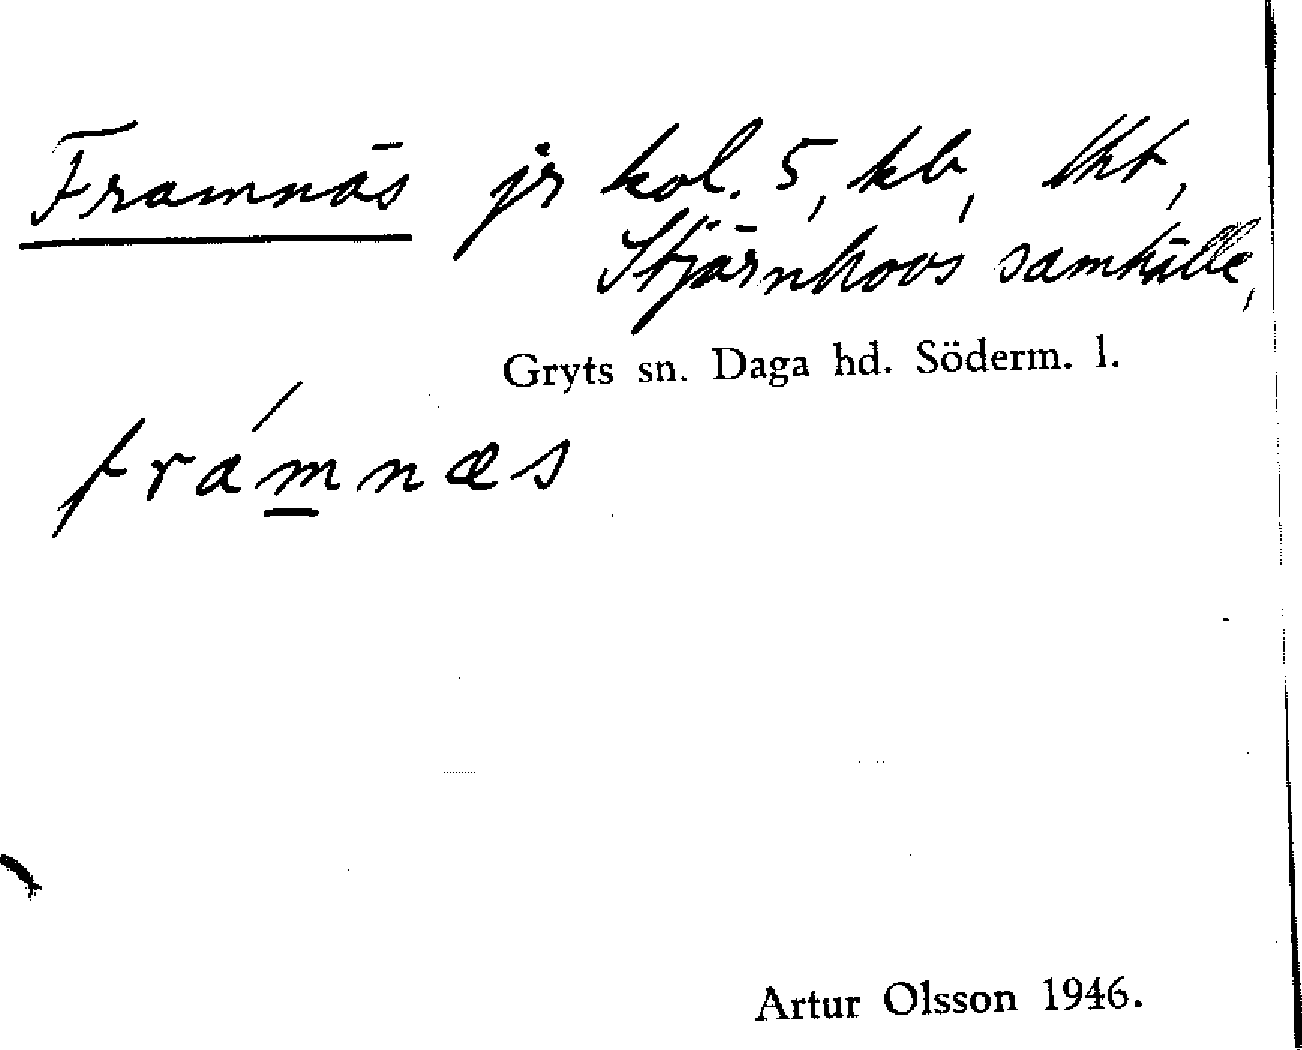 Framnäs jr kol. 5, kb,
Stjärnhovs samhälle,
Gryts sn. Daga hd. Söderm. l.
frámnæs
Artur Olsson 1946.